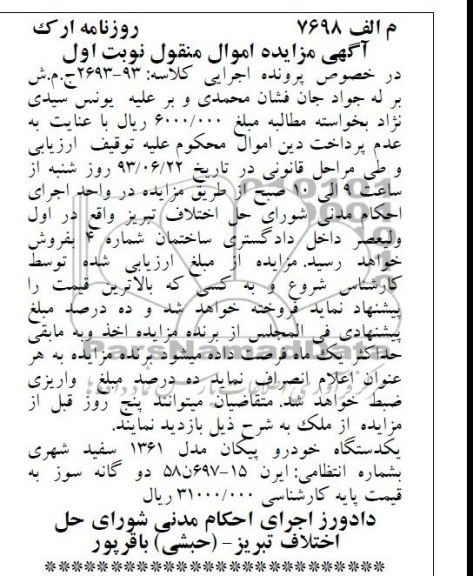 م الف ۷۶۹۸ روزنامه ارک
آگهی مزایده اموال منقول نوبت اول
در خصوص پرونده اجرایی کلاسه: ۹۳-۲۶۹۳ج.م.ش
بر له جواد جان فشان محمدی و بر علیه یونس سیدی
نژاد بخواسته مطالبه مبلغ ۶۰۰۰/۰۰۰ ریال با عنایت به
عدم پرداخت دین اموال محکوم علیه توقیف ارزیابی
و طی مراحل قانونی در تاریخ ۹۳/۰۶/۲۲ روز شنبه از
ساعت ۹ الی ۱۰ صبح از طریق مزایده در واحد اجرای
احکام مدنی شورای حل اختلاف تبریز واقع در اول
ولیعصر داخل دادگستری ساختمان شماره ۴ بفروش
خواهد رسید. مزایده از مبلغ ارزیابی شده توسط
کارشناس شروع و به کسی که بالاترین قیمت را
پیشنهاد نماید فروخته خواهد شد و ده درصد مبلغ
پیشنهادی فی المجلس از برنده مزایده اخذ وبه مابقی
حداکثر یک ماه فرصت داده میشود برنده مزایده به هر
عنوان اعلام انصراف نمایم ده درصد مبلغ واریزی
ضبط خواهد شد. متقاضیان میتوانند پنج روز قبل از
مزایده از ملک به شرح ذیل بازدید نمایند.
یکدستگاه خودرو پیکان مدل ۱۳۶۱ سفید شهری
بشماره انتظامی: ایرن ۱۵-۶۹۷ن۵۸ دو گانه سوز به
قیمت پایه کارشناسی ۳۱۰۰۰/۰۰۰ ریال
دادورز اجرای احکام مدنی شورای حل
اختلاف تبریز- (حبشی) باقرپور
**************************
ParsNamadData